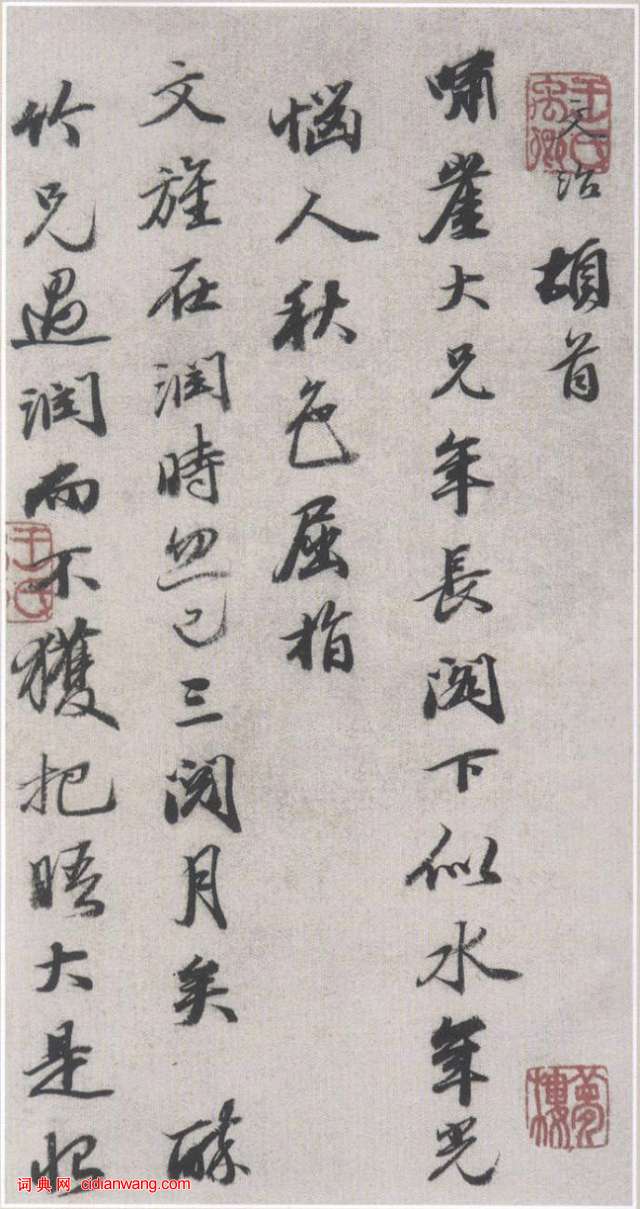 文治頓首
嘯崖大兄年長閣下似水年光
惱人秋色屈指
文旌在潤時忽已三閱月矣 酥
竹兄過潤而不獲把晤大是
王氏禹卿
夢樓
王氏
词典网 cidianwang.com